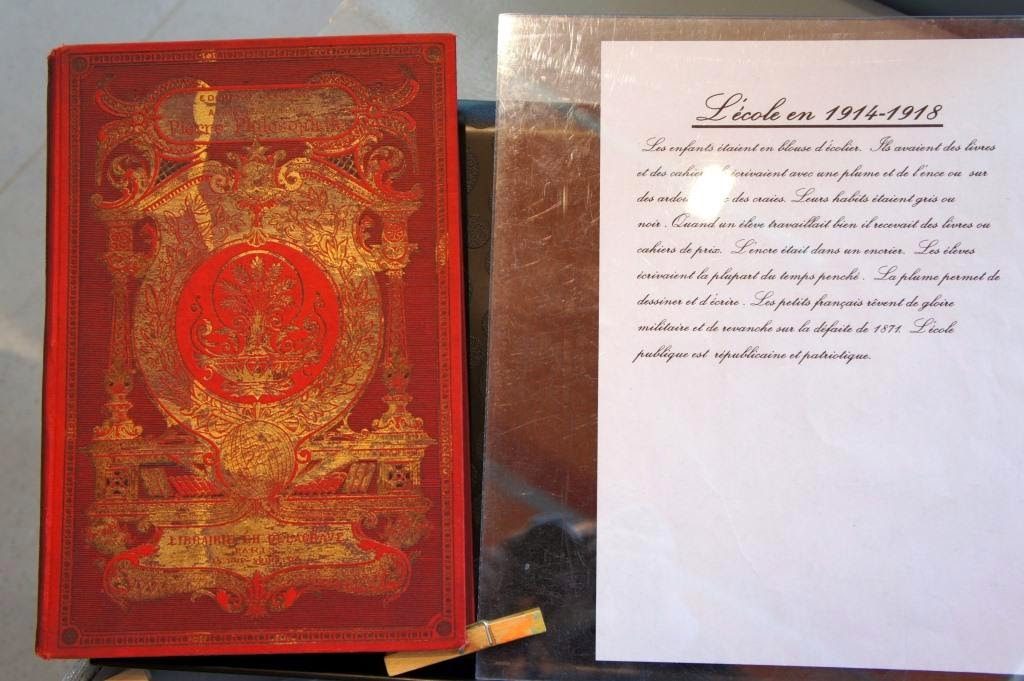 Pierre Philosophale
LIBRAIRIE CH. DELAGRAVE
PARIS
L'école en 1914-1918
Les enfants étaient en blouse d'écolier. Ils avaient des livres
et des cahiers écrivaient avec une plume et de l'ence ou sur
des craies. Leurs habits étaient gris ou
noir. Quand un élève travaillait bien il recevait des livres ou
cahiers de prix. L'encre était dans un encrier. Les élèves
écrivaient la plupart du temps penché. La plume permet de
dessiner et d'écrire. Les petits français rêvent de gloire
militaire et de revanche sur la défaite de 1871. L'école
publique est républicaine et patriotique.